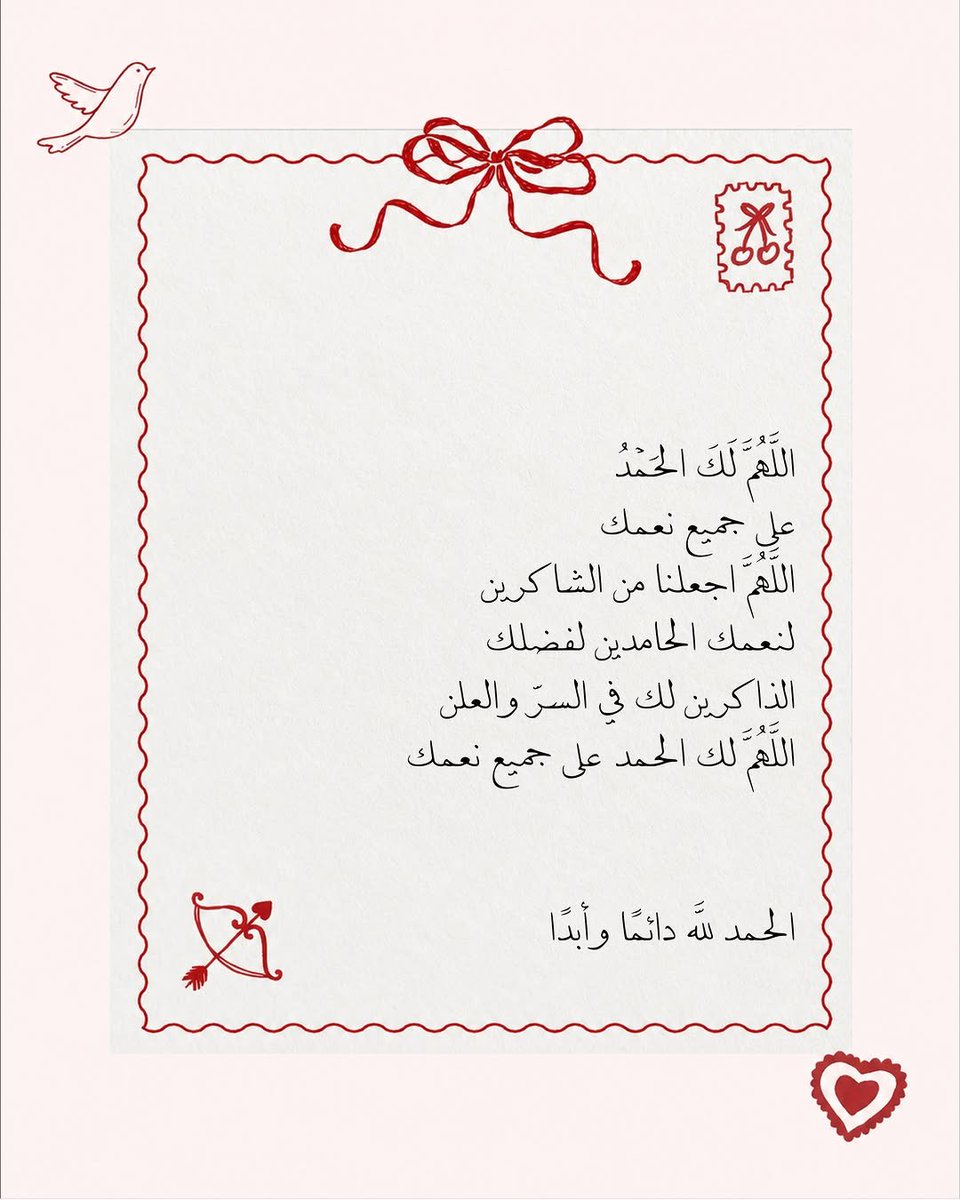 اللَّهُمَّ لَكَ الحَمْدُ
على جميع نعمك
اللَّهُمَّ اجعلنا من الشاكرين
لنعمك الحامدين لفضلك
الذاكرين لك في السرّ والعلن
اللَّهُمَّ لك الحمد على جميع نعمك
الحمد للَّه دائمًا وأبدًا